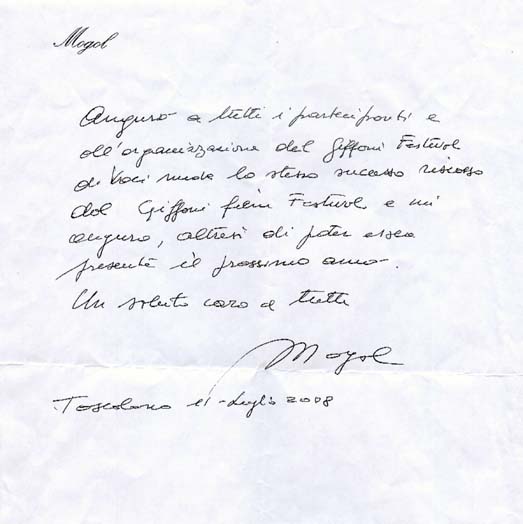 Mogol
Auguro a tutti i partecipanti e
all'organizzazione del Giffoni Festival
di Voci nuove lo stesso successo riscosso
dal Giffoni film Festival e mi
auguro, altresì di poter essere
presente il prossimo anno.
Un saluto caro a tutti
Mogol
Toscolano 11 - Luglio 2008